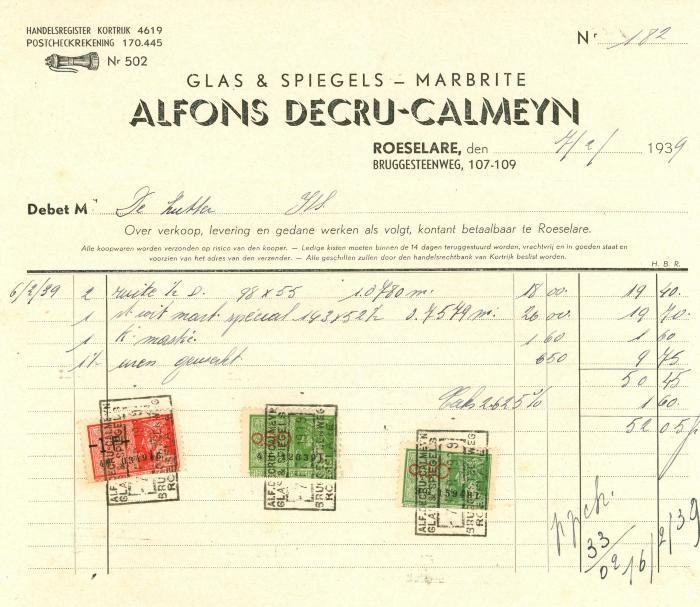 HANDELSREGISTER KORTRIJK 4619
POSTCHECKREKENING 170.445
Nr 502
Nr 182
GLAS & SPIEGELS – MARBRITE
ALFONS DECRU-CALMEYN
ROESELARE, den 7/2/ 1939
BRUGGESTEENWEG, 107-109
Debet M De
Over verkoop, levering en gedane werken als volgt, kontant betaalbaar te Roeselare.
Alle koopwaren worden verzonden op risico van den kooper. — Ledige kisten moeten binnen de 14 dagen teruggestuurd worden, vrachtvrij en in goeden staat en
voorzien van het adres van den verzender. — Alle geschillen zullen door den handelsrechtbank van Kortrijk beslist worden.
H. B. R.
6/2/39 2 ruite 98 x 55 1.0780 m. 18 00. 19 40.
1 wit spécial 0.7579 m. 26 00. 19 70.
1 k. mastic 1 60 1 60
uren gewerkt 6 50 9 75
50 45
2.625% 1 60.
52 05
ALF. DECRU-CALMEYN
GLAS & SPIEGELS
BRUGGESTEENWEG
ALF. DECRU-CALMEYN
GLAS & SPIEGELS
BRUGGESTEENWEG
ALF. DECRU-CALMEYN
GLAS & SPIEGELS
BRUGGESTEENWEG
16/2/39